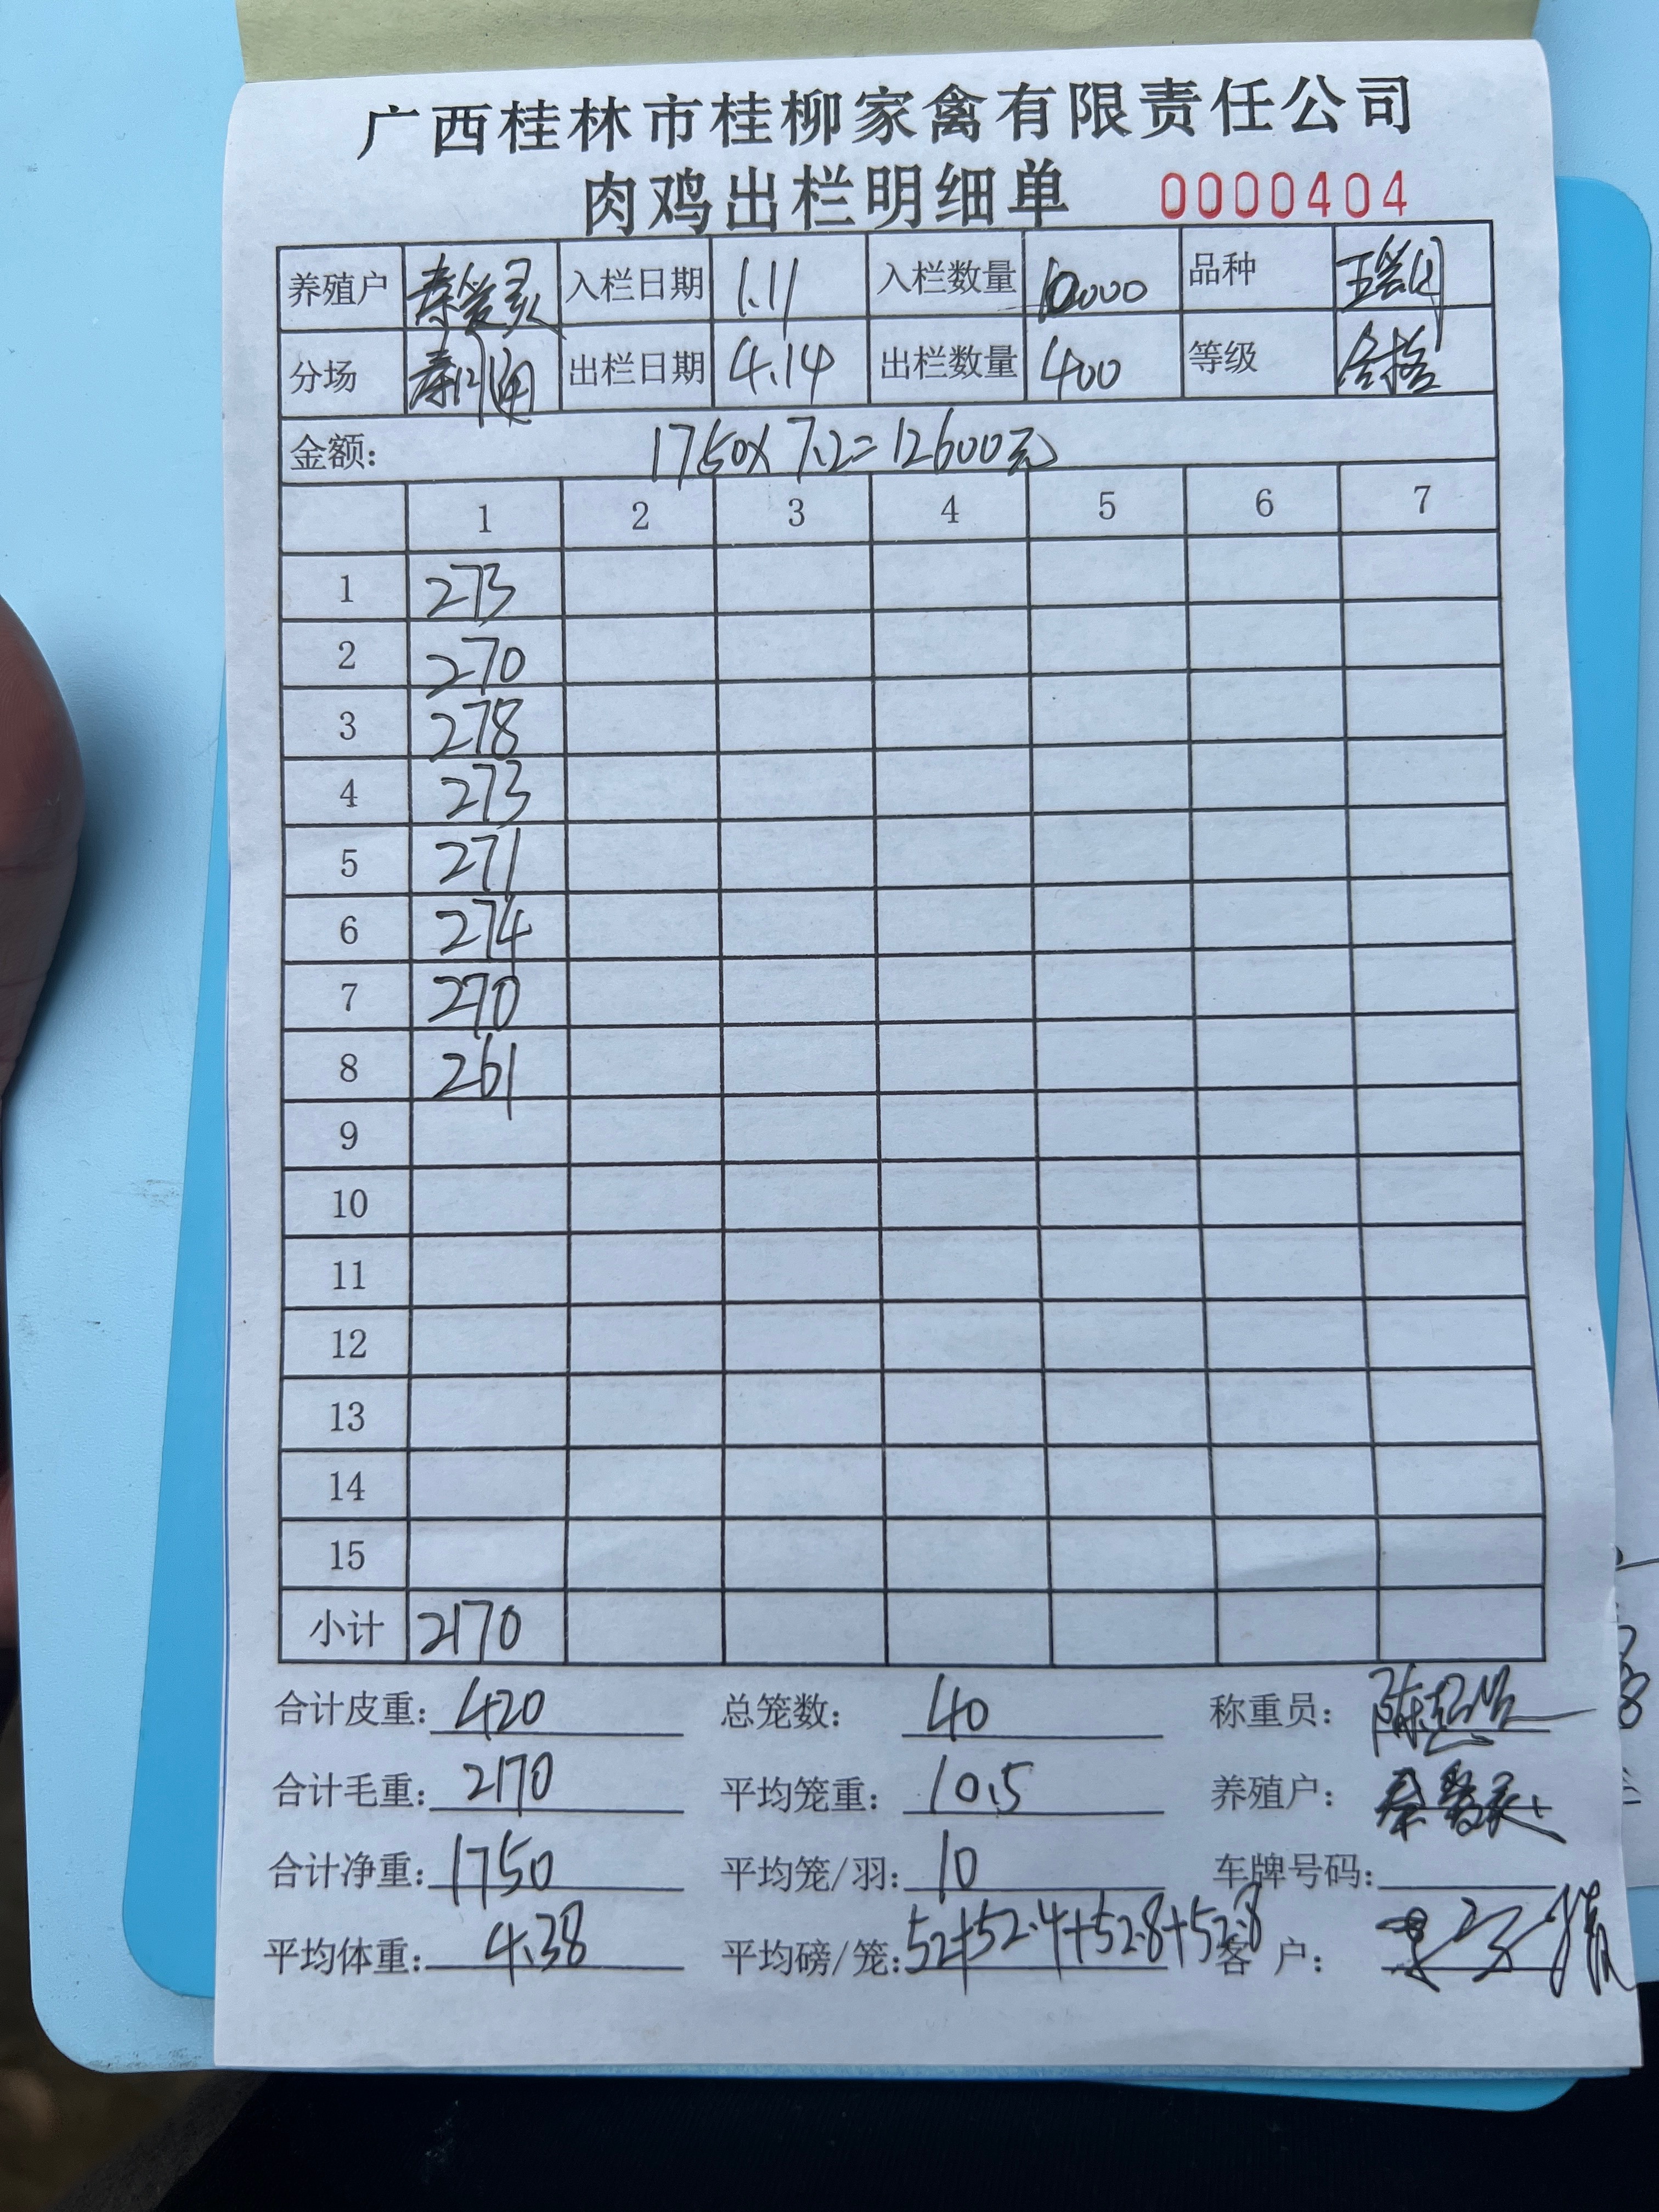 广西桂林市桂柳家禽有限责任公司
肉鸡出栏明细单 0000404
养殖户 入栏日期 1.11 入栏数量 10000 品种
分场 出栏日期 4.14 出栏数量 400 等级 合格
金额: 1750×7.2=12600元
1 2 3 4 5 6 7
1 273
2 270
3 278
4 273
5 271
6 274
7 270
8 261
9
10
11
12
13
14
15
小计 2170
合计皮重: 420 总笼数: 40 称重员:
合计毛重: 2170 平均笼重: 10.5 养殖户:
合计净重: 1750 平均笼/羽: 10 车牌号码:
平均体重: 4.38 平均磅/笼: 52+52.4+52.8+52.8 客 户: